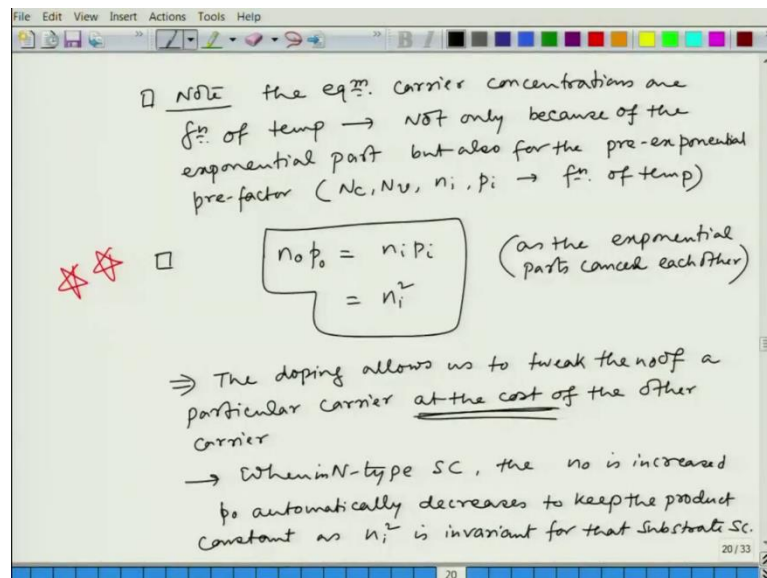 File Edit View Insert Actions Tools Help
□ Note the eqm. carrier concentrations are
fn. of temp → Not only because of the
exponential part but also for the pre-exponential
pre-factor (Nc, Nv, ni, pi → fn. of temp)
□ n₀p₀ = nᵢpᵢ (as the exponential
= nᵢ² parts cancel each other)
⇒ The doping allows us to tweak the no of a
particular carrier at the cost of the other
carrier
→ When in N-type SC, the n₀ is increased
p₀ automatically decreases to keep the product
constant as nᵢ² is invariant for that substrate SC.
20 / 33
20